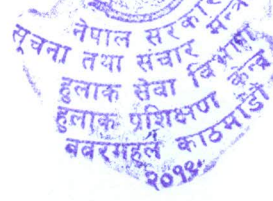 नेपाल सरकार
सूचना तथा संचार मन्त्रा
हुलाक सेवा विभाग
हुलाक प्रशिक्षण केन्द्र
बबरमहल काठमाडौं
२०१९